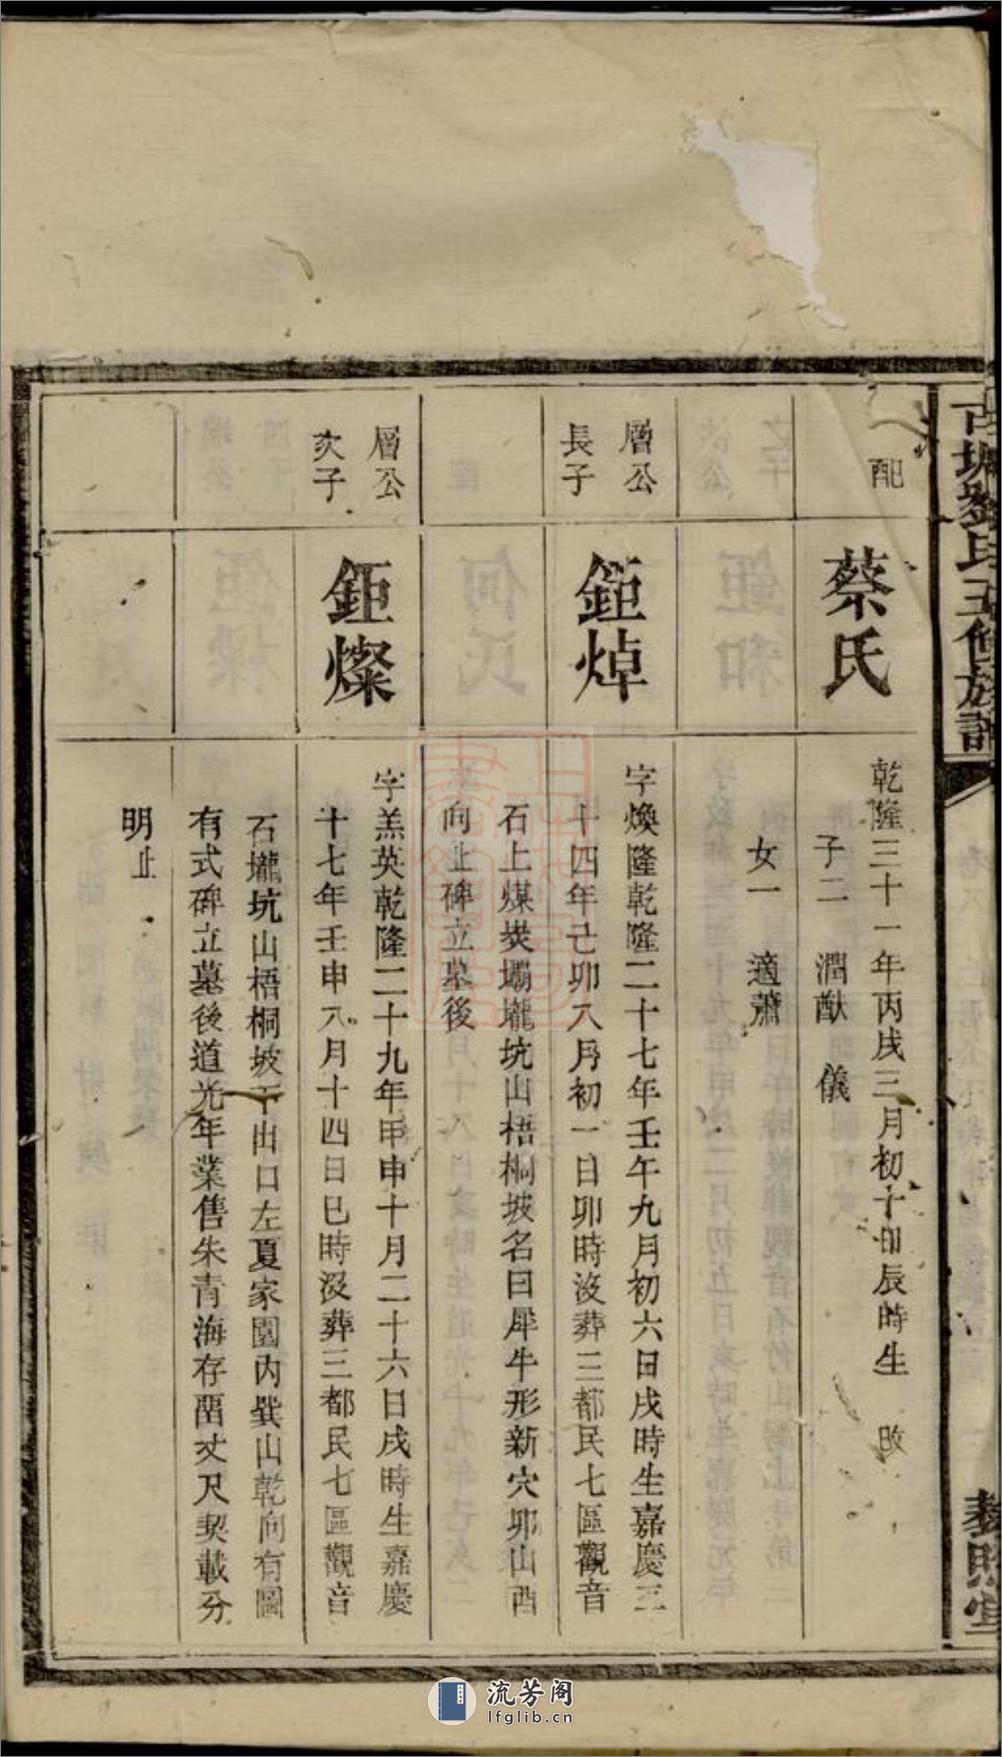 古塘劉氏五修族譜
藜照堂
配
蔡氏
乾隆三十一年丙戌三月初十日辰時生 改
子二 潤猷 儀
女一 適蕭
層公
長子
鉅焯
字煥隆乾隆二十七年壬午九月初六日戌時生嘉慶二
十四年己卯八月初一日卯時沒葬三都民七區觀音
石上煤炭壩壠坑山梧桐坡名曰犀牛形新穴卯山酉
向止碑立墓後
層公
次子
鉅燦
字羔英乾隆二十九年甲申十月二十六日戌時生嘉慶
十七年壬申八月十四日巳時沒葬三都民七區觀音
石壠坑山梧桐坡下出口左夏家園內巽山乾向有圖
有式碑立墓後道光年業售朱青海存留丈尺契載分
明止
流芳阁
lfglib.cn